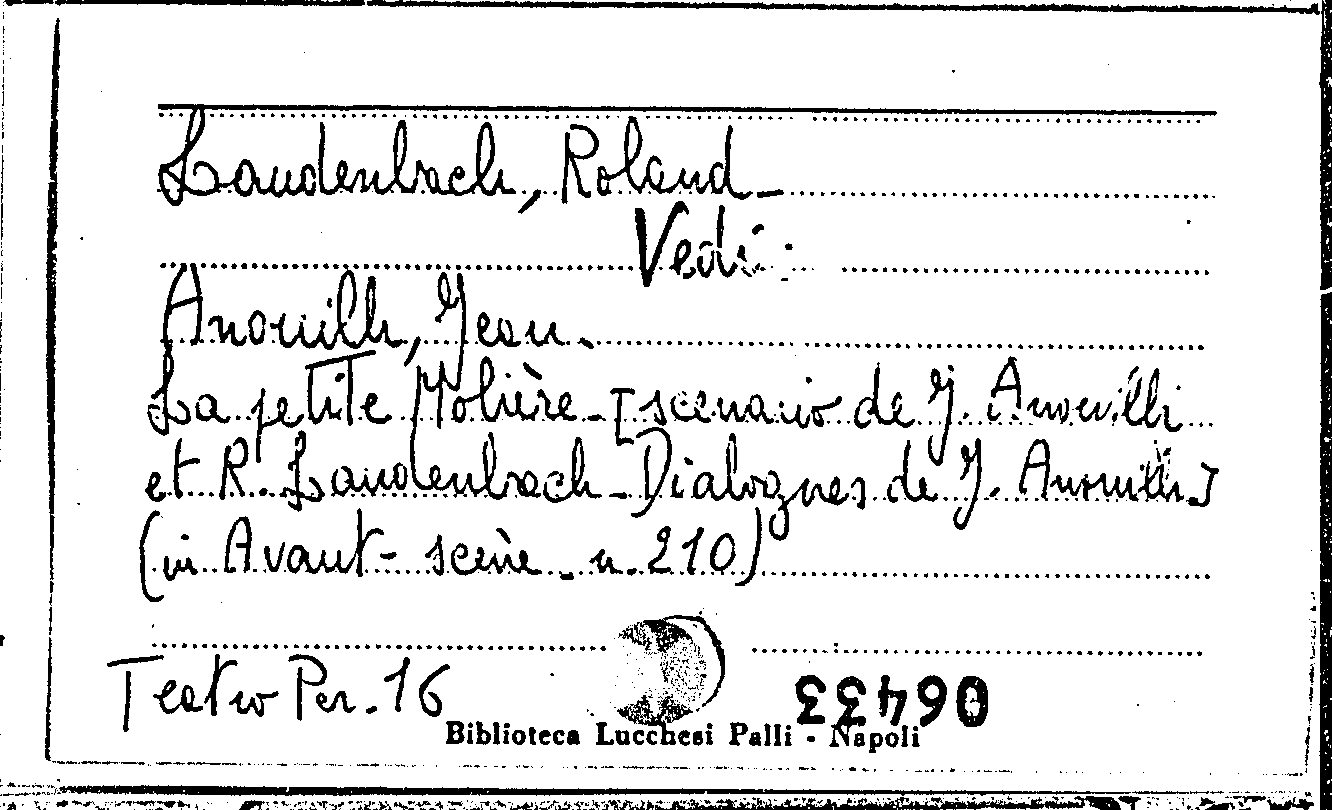 Laudenbach, Roland -
Vedi:
Anouilh, Jean.
La petite Molière - [scenario de J. Anouilh
et R. Laudenbach - Dialogues de J. Anouilh]
(in Avant-scène - n. 210)
Teatro Per. 16
06433
Biblioteca Lucchesi Palli - Napoli